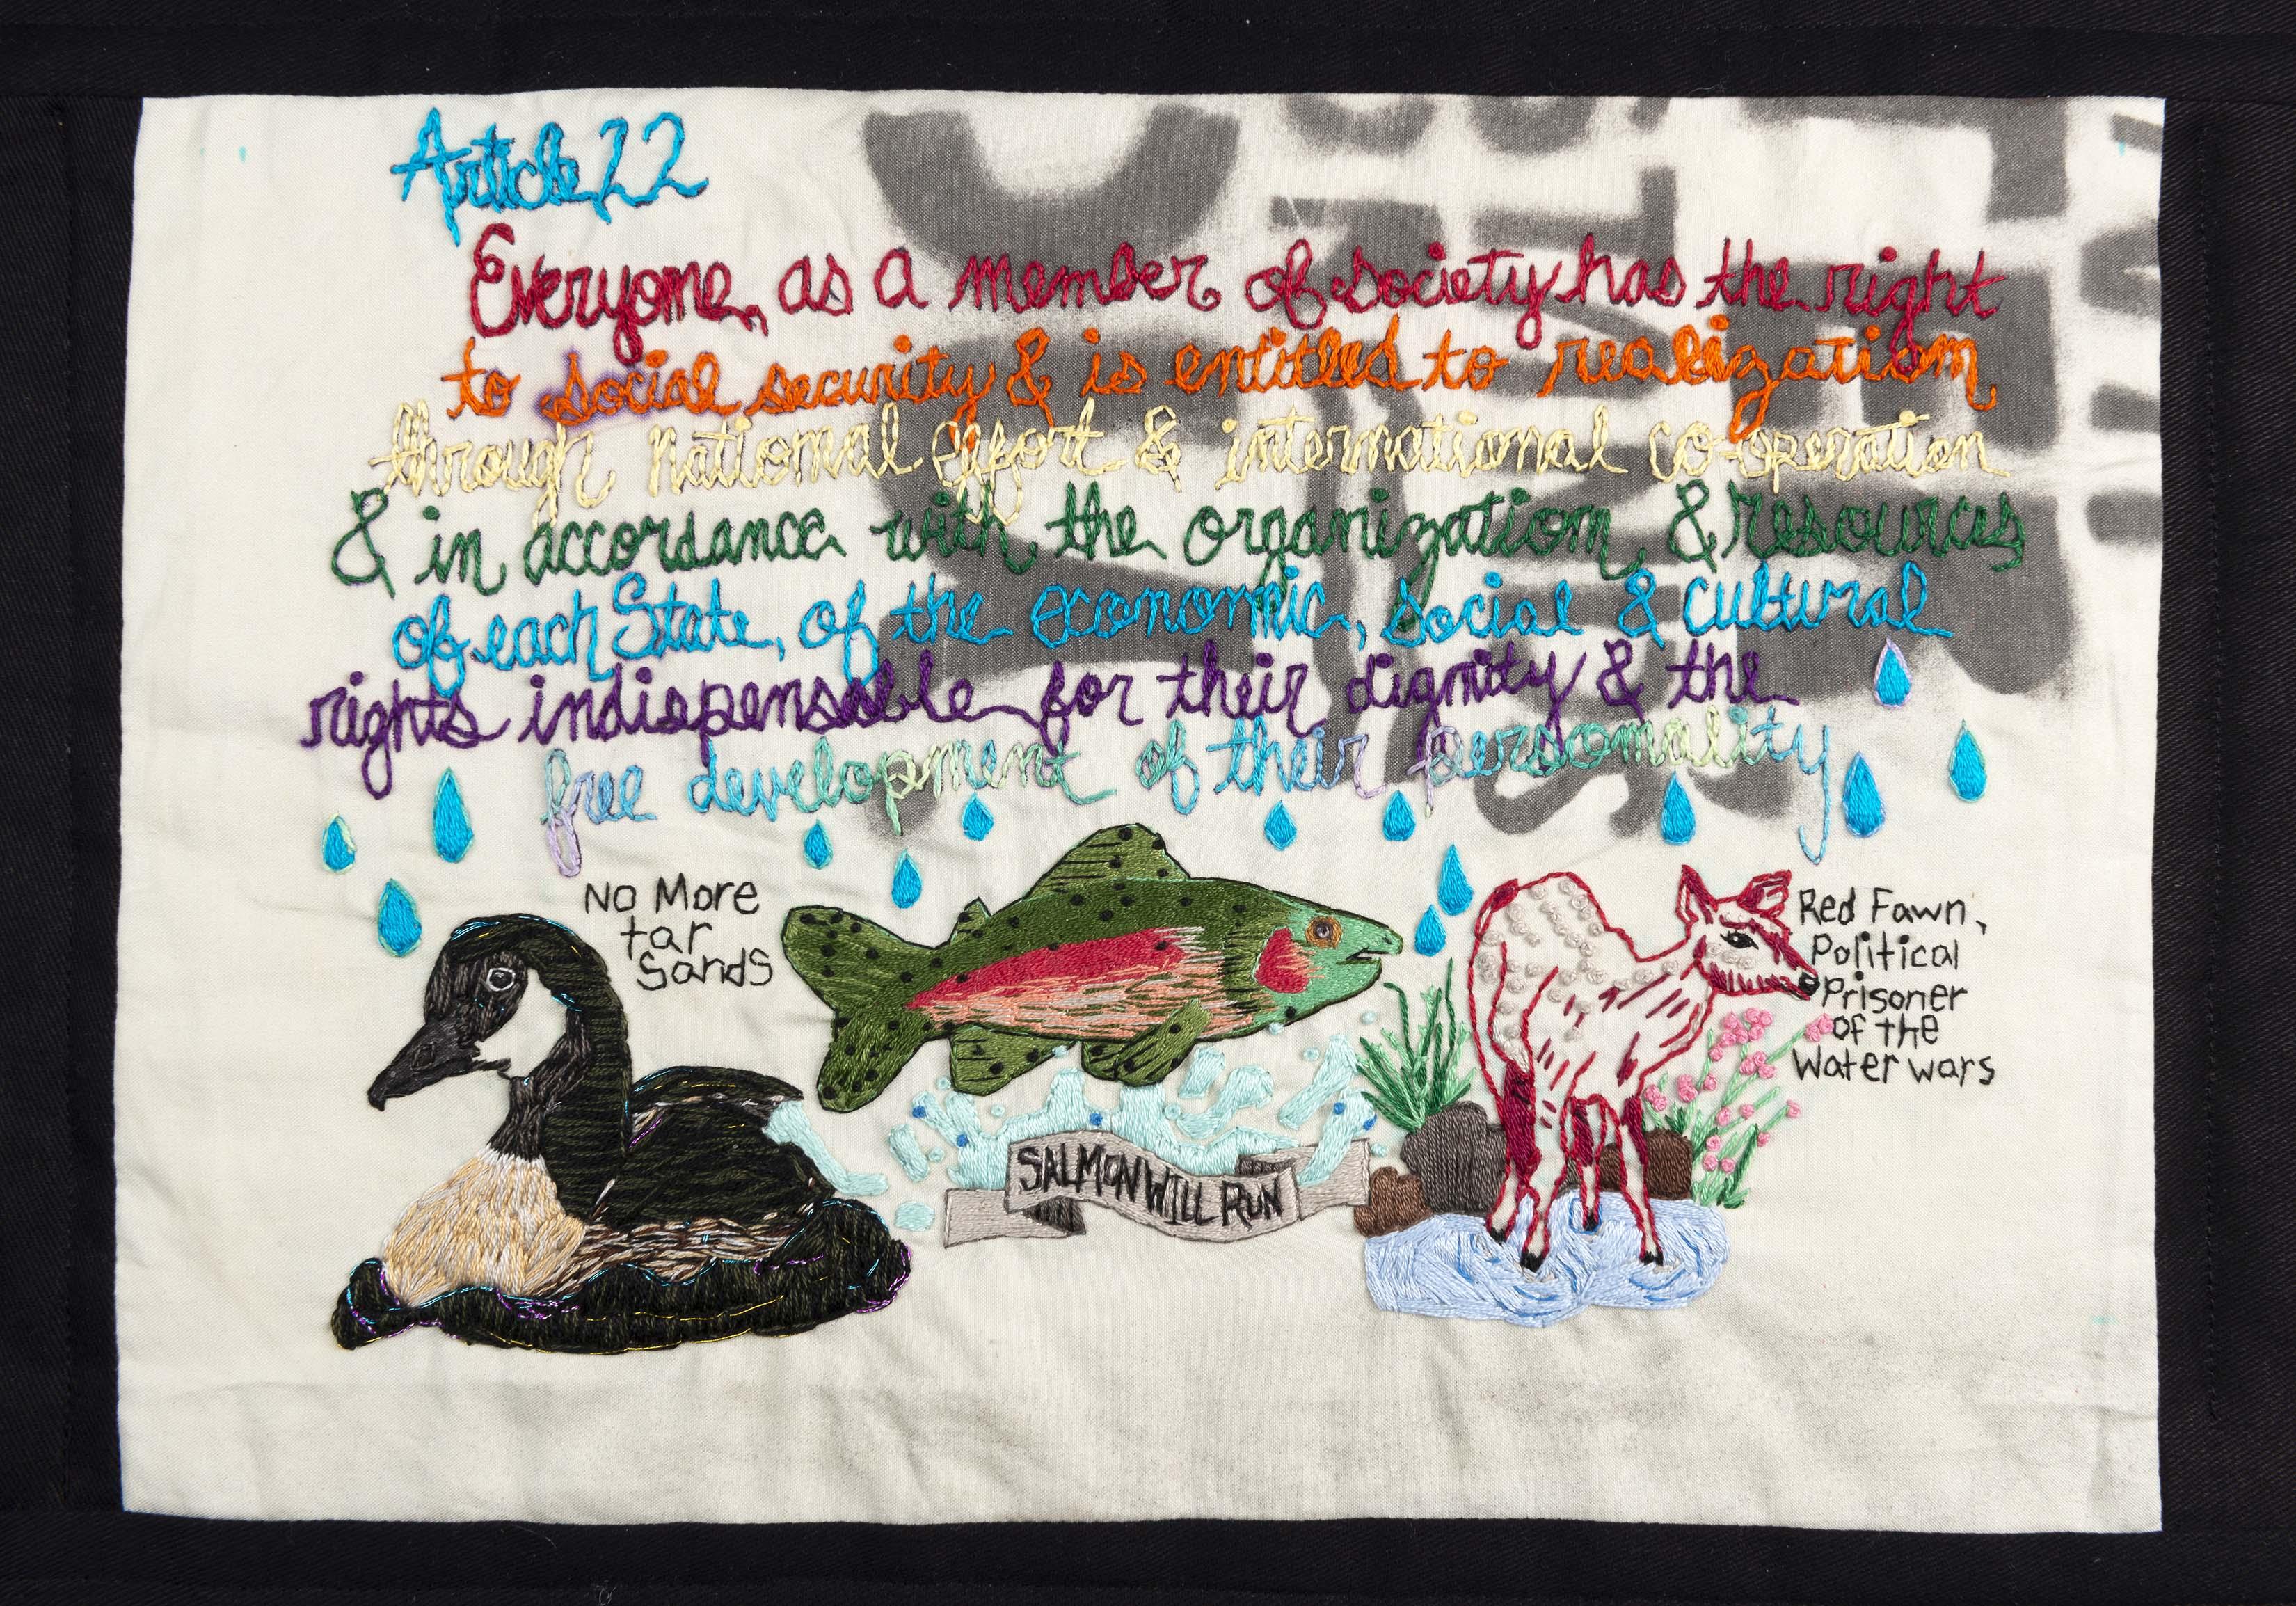 Article 22
Everyone, as a member of society has the right
to social security & is entitled to realization
through national effort & international co-operation
& in accordance with the organization & resources
of each State, of the economic, social & cultural
rights indispensable for their dignity & the
free development of their personality
No More
tar
Sands
SALMON WILL RUN
Red Fawn,
Political
Prisoner
of the
Water wars